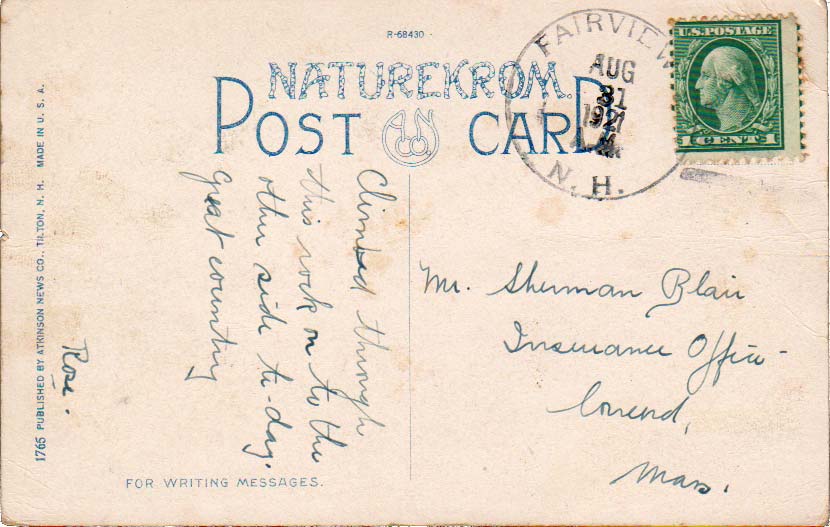 R-68430
NATUREKROM.
POST CARD
A.N.CO.
FAIRVIEW
AUG
31
1921
N. H.
U.S. POSTAGE
1 CENT 1
Climbed through
this rock on to the
other side to-day.
Great country
Rose.
Mr. Sherman Blair
Insurance Office
Mass.
FOR WRITING MESSAGES.
1765 PUBLISHED BY ATKINSON NEWS CO., TILTON, N. H. MADE IN U. S. A.